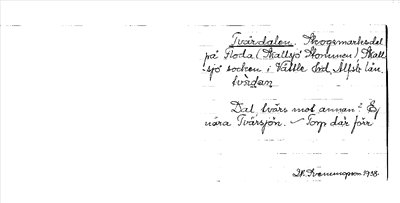 Tvärdalen. Skogsmarksdel
på Floda (Skallsjö Storumen) Skall
sjö socken i Vättle hd, Älfsb. län
tvärdan
Dal tvärs mot annan? Ej
nära Tvärsjön. – Torp där förr
1938